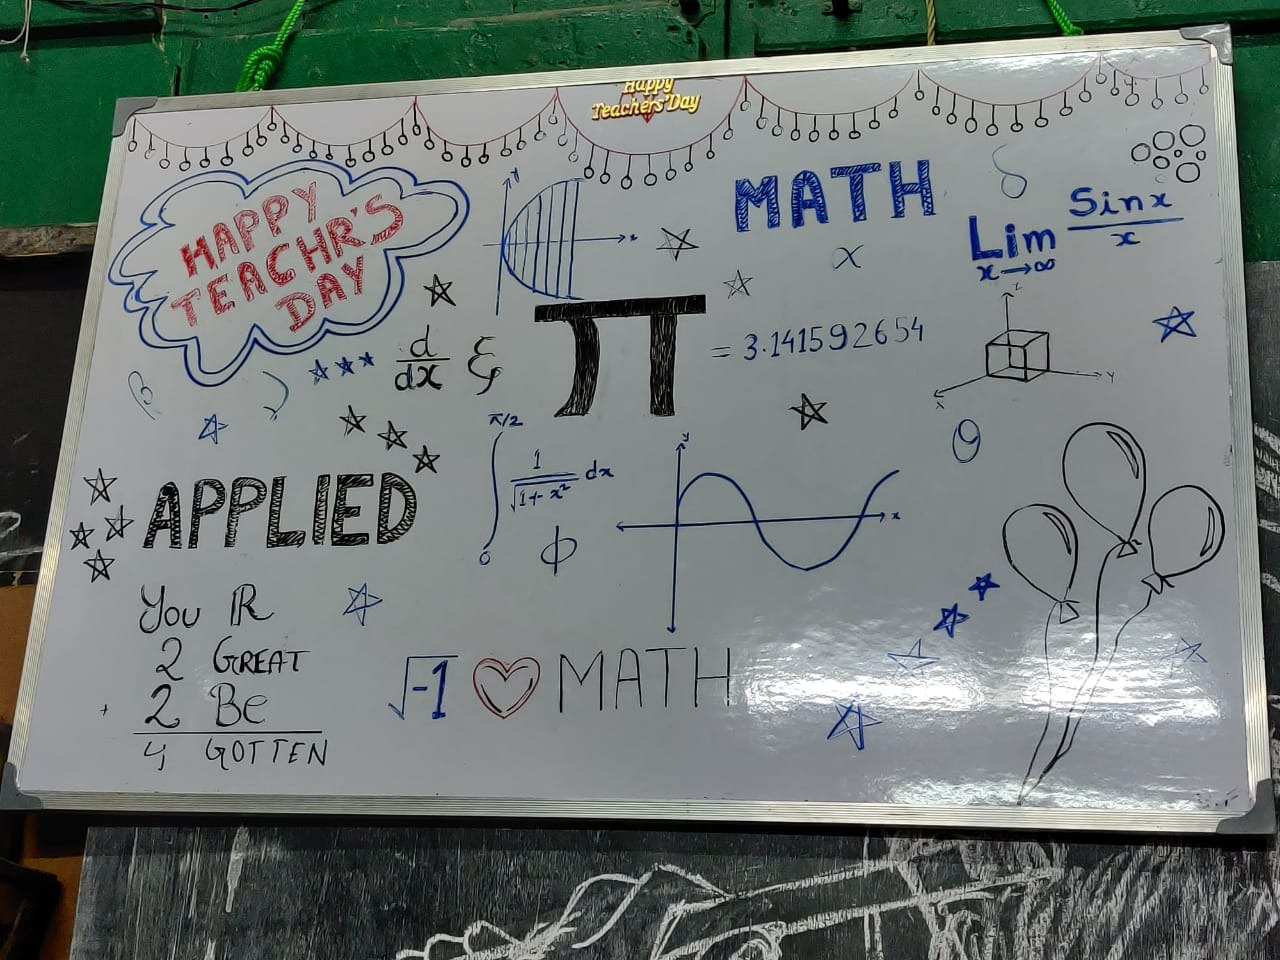 Happy
Teachers'Day
HAPPY
TEACHR'S
DAY
y
x
MATH
α
δ
Lim Sinx/x
x→∞
d/dx ξ
π = 3.141592654
z
y
x
β
θ
APPLIED
π/2
∫ 1/√1+x² dx
0
ϕ
y
x
You R
2 GREAT
+ 2 Be
4 GOTTEN
√-1 ♡ MATH